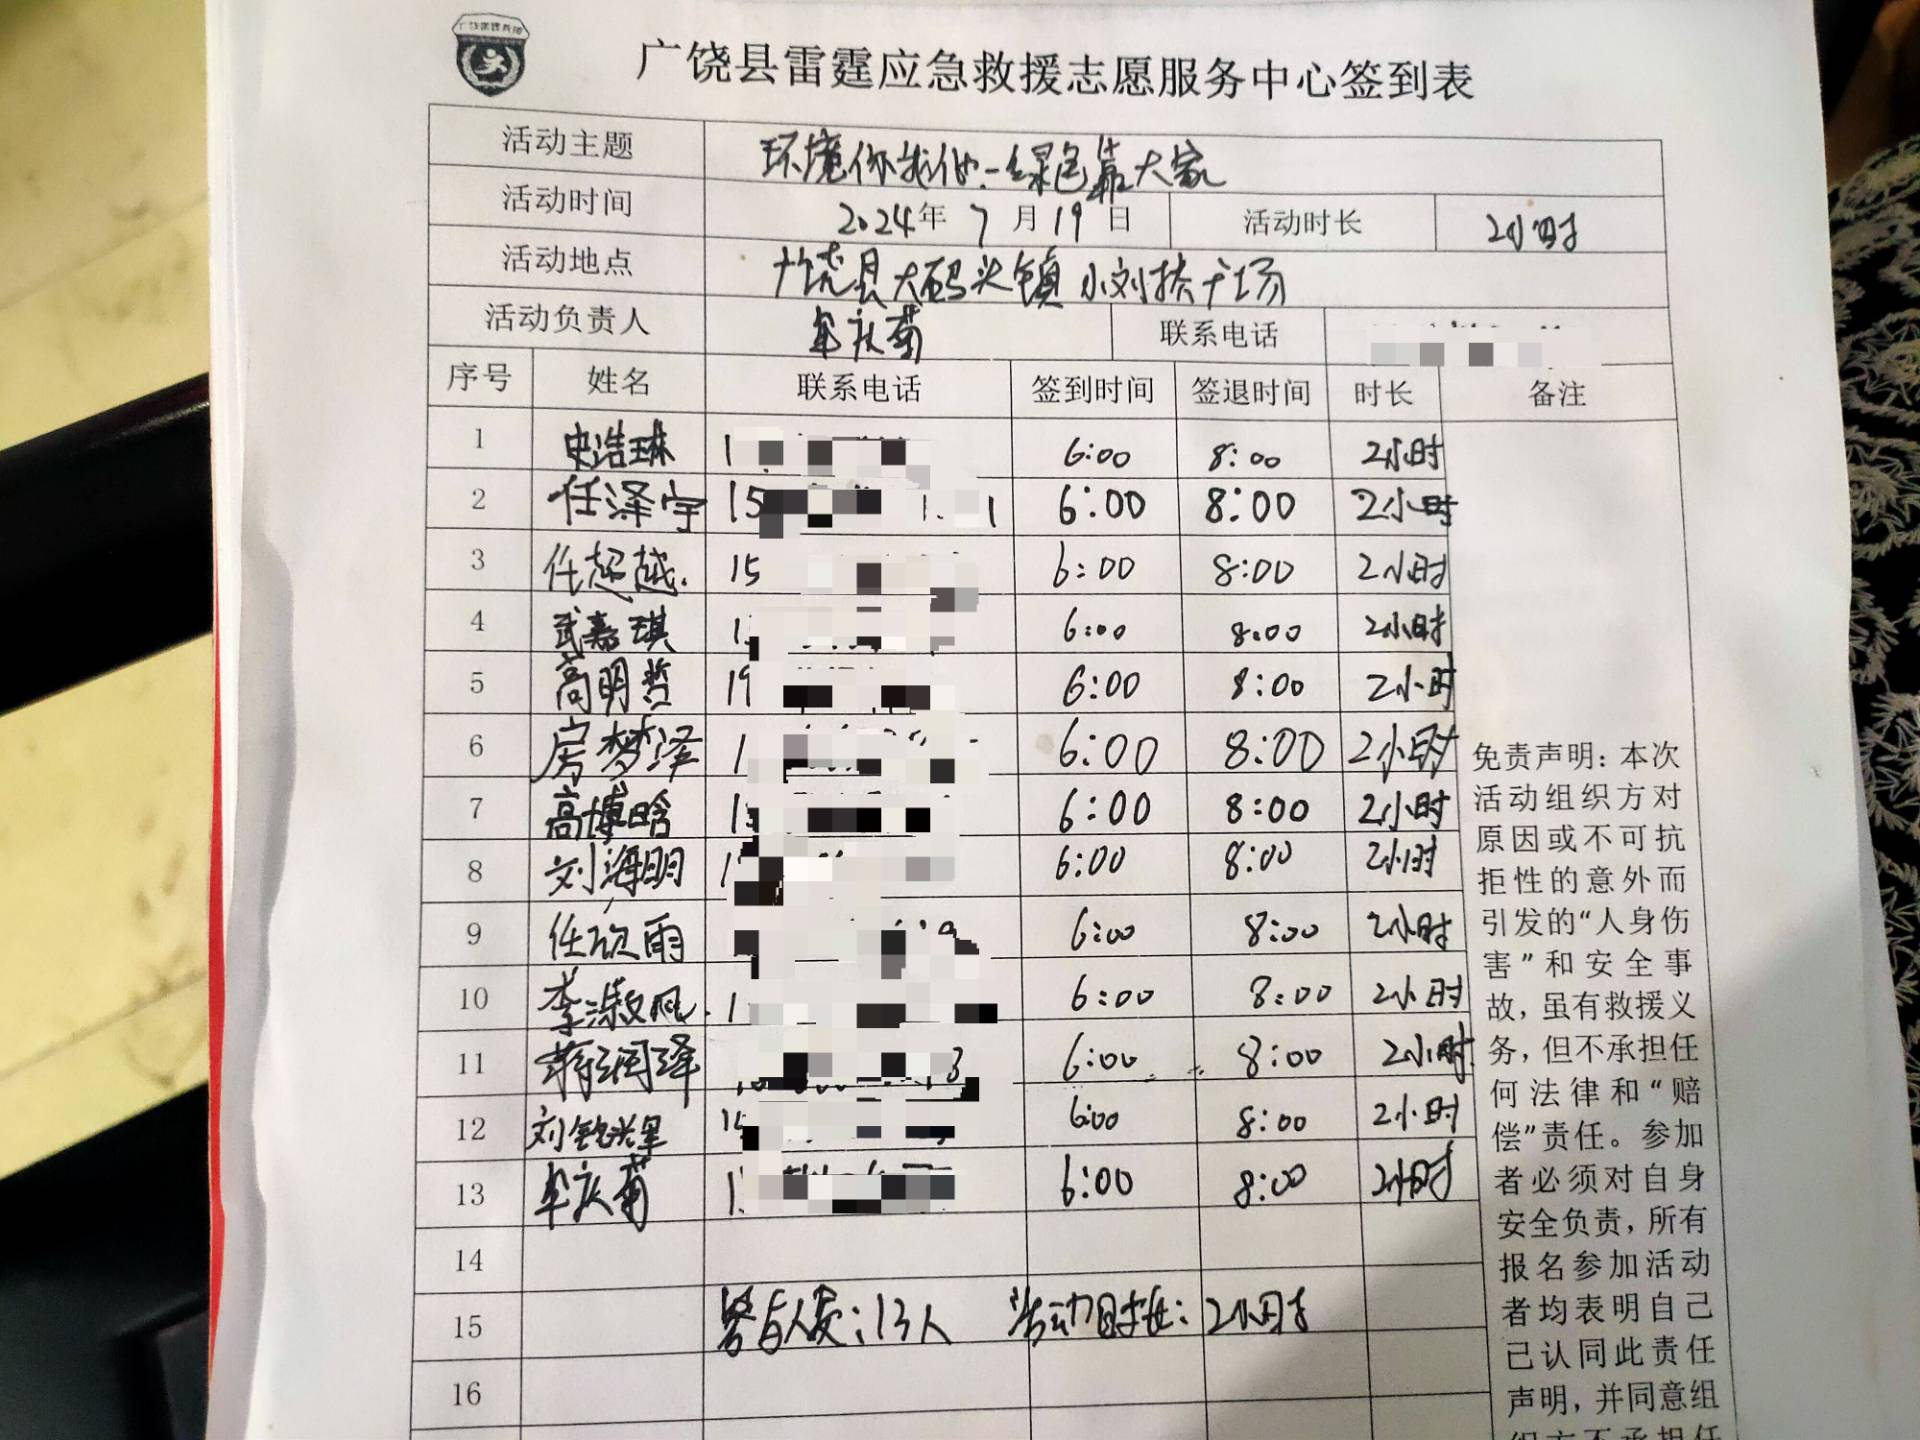 广饶县雷霆应急救援志愿服务中心签到表
活动主题 环境你我他-绿色靠大家
活动时间 2024年 7 月 19 日 活动时长 2小时
活动地点 广饶县大码头镇小刘桥广场
活动负责人 牟庆菊 联系电话
序号 姓名 联系电话 签到时间 签退时间 时长 备注
1 史浩琳 1 6:00 8:00 2小时
2 任泽宇 15 1 6:00 8:00 2小时
3 任超越 15 6:00 8:00 2小时
4 武嘉琪 1 6:00 8:00 2小时
5 高明哲 19 6:00 8:00 2小时
6 房梦泽 1 6:00 8:00 2小时
7 高博晗 1 6:00 8:00 2小时
8 刘海明 1 6:00 8:00 2小时
9 任欣雨 6:00 8:00 2小时
10 李淑 1 6:00 8:00 2小时
11 蒋润泽 3 6:00 8:00 2小时
12 刘 6:00 8:00 2小时
13 牟庆菊 1 6:00 8:00 2小时
14
15 参与人数:13人 活动时长:2小时
16
免责声明:本次
活动组织方对
原因或不可抗
拒性的意外而
引发的“人身伤
害”和安全事
故,虽有救援义
务,但不承担任
何法律和“赔
偿”责任。参加
者必须对自身
安全负责,所有
报名参加活动
者均表明自己
已认同此责任
声明,并同意组
织方不承担任